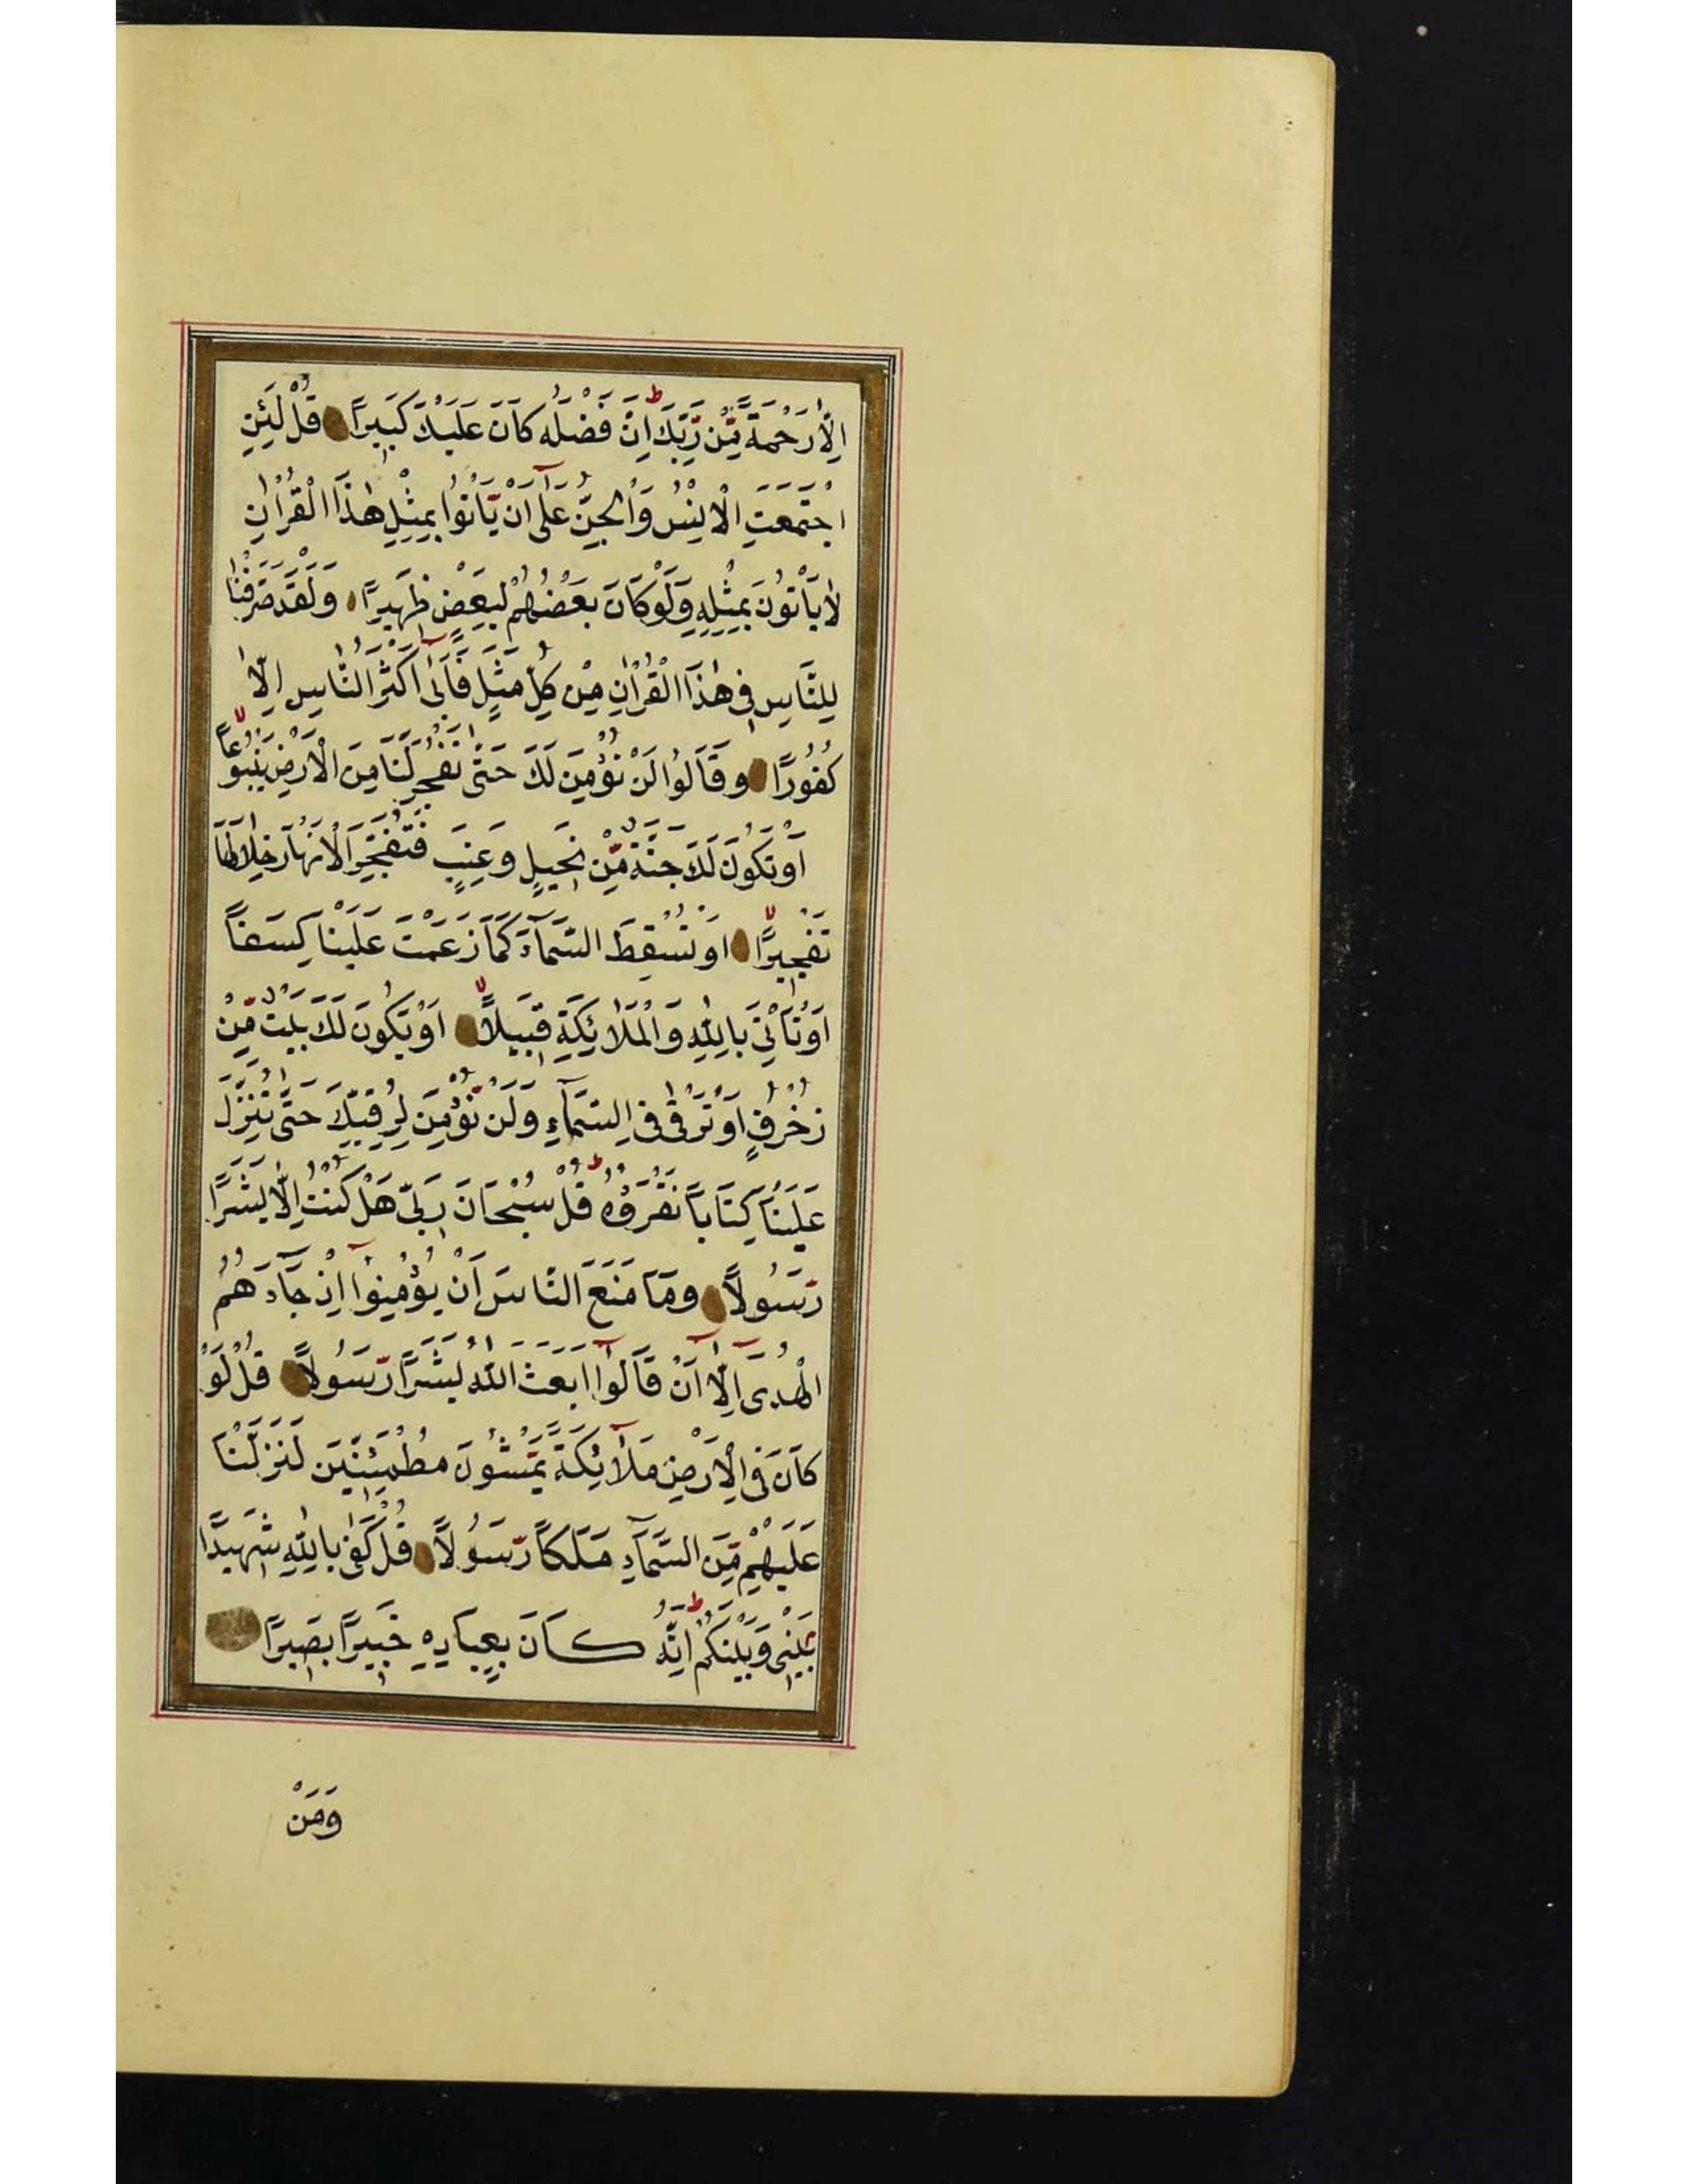 اِلَّا رَحْمَةً مِّنْ رَّبِّكَ اِنَّ فَضْلَهُ كَانَ عَلَيْكَ كَبِيرًا قُلْ لَئِنِ
اجْتَمَعَتِ الْاِنْسُ وَالْجِنُّ عَلٰٓى اَنْ يَّاْتُوا بِمِثْلِ هٰذَا الْقُرْاٰنِ
لَا يَاْتُونَ بِمِثْلِهِ وَلَوْ كَانَ بَعْضُهُمْ لِبَعْضٍ ظَهِيرًا وَلَقَدْ صَرَّفْنَا
لِلنَّاسِ فِى هٰذَا الْقُرْاٰنِ مِنْ كُلِّ مَثَلٍ فَاَبٰٓى اَكْثَرُ النَّاسِ اِلَّا
كُفُورًا وَقَالُوا لَنْ نُؤْمِنَ لَكَ حَتّٰى تَفْجُرَ لَنَا مِنَ الْاَرْضِ يَنْبُوعًا
اَوْ تَكُونَ لَكَ جَنَّةٌ مِّنْ نَخِيلٍ وَعِنَبٍ فَتُفَجِّرَ الْاَنْهَارَ خِلَالَهَا
تَفْجِيرًا اَوْ تُسْقِطَ السَّمَآءَ كَمَا زَعَمْتَ عَلَيْنَا كِسَفًا
اَوْ تَاْتِىَ بِاللّٰهِ وَالْمَلَائِكَةِ قَبِيلًا اَوْ يَكُونَ لَكَ بَيْتٌ مِّنْ
زُخْرُفٍ اَوْ تَرْقٰى فِى السَّمَآءِ وَلَنْ نُؤْمِنَ لِرُقِيِّكَ حَتّٰى تُنَزِّلَ
عَلَيْنَا كِتَابًا نَقْرَؤُهُ قُلْ سُبْحَانَ رَبِّى هَلْ كُنْتُ اِلَّا بَشَرًا
رَّسُولًا وَمَا مَنَعَ النَّاسَ اَنْ يُؤْمِنُوٓا اِذْ جَآءَهُمُ
الْهُدٰىٓ اِلَّآ اَنْ قَالُوٓا اَبَعَثَ اللّٰهُ بَشَرًا رَّسُولًا قُلْ لَوْ
كَانَ فِى الْاَرْضِ مَلٰٓائِكَةٌ يَّمْشُونَ مُطْمَئِنِّينَ لَنَزَّلْنَا
عَلَيْهِمْ مِّنَ السَّمَآءِ مَلَكًا رَّسُولًا قُلْ كَفٰى بِاللّٰهِ شَهِيدًا
بَيْنِى وَبَيْنَكُمْ اِنَّهُ كَانَ بِعِبَادِهِ خَبِيرًا بَصِيرًا
وَمَنْ